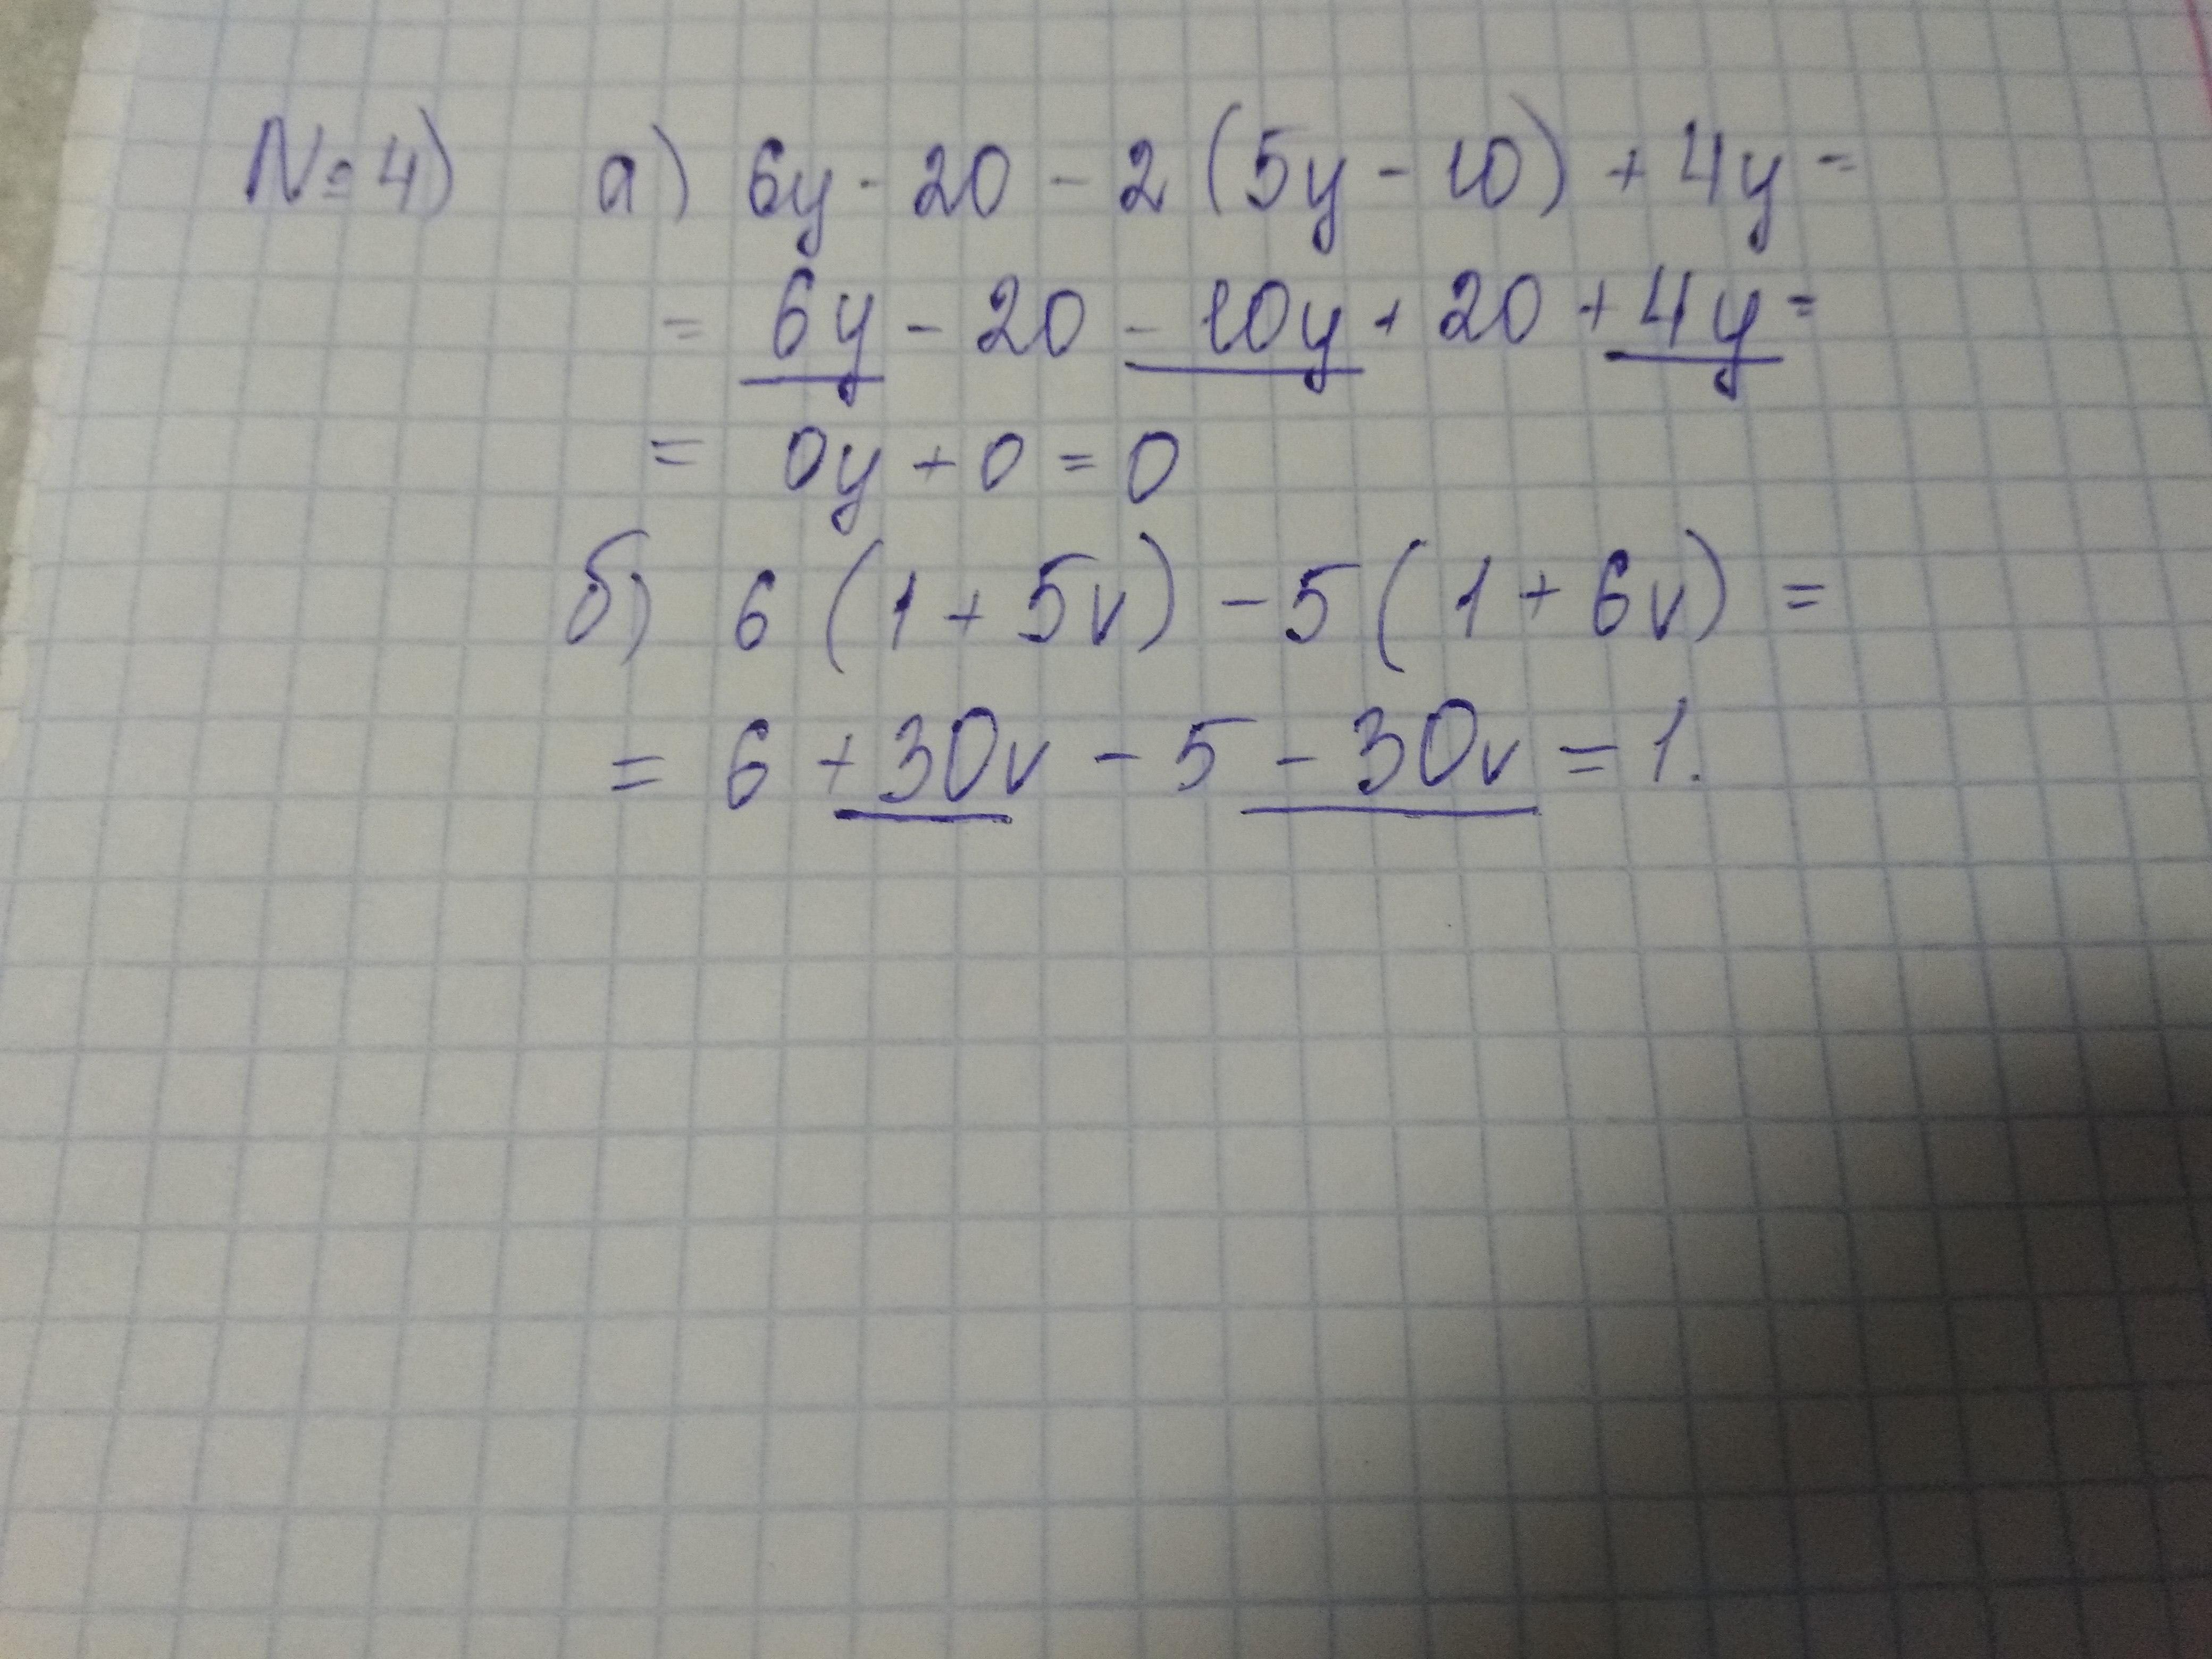 № 4) а) 6y - 20 - 2 (5y - 10) + 4y =
= 6y - 20 - 10y + 20 + 4y =
= 0y + 0 = 0
б) 6 (1 + 5v) - 5 (1 + 6v) =
= 6 + 30v - 5 - 30v = 1.